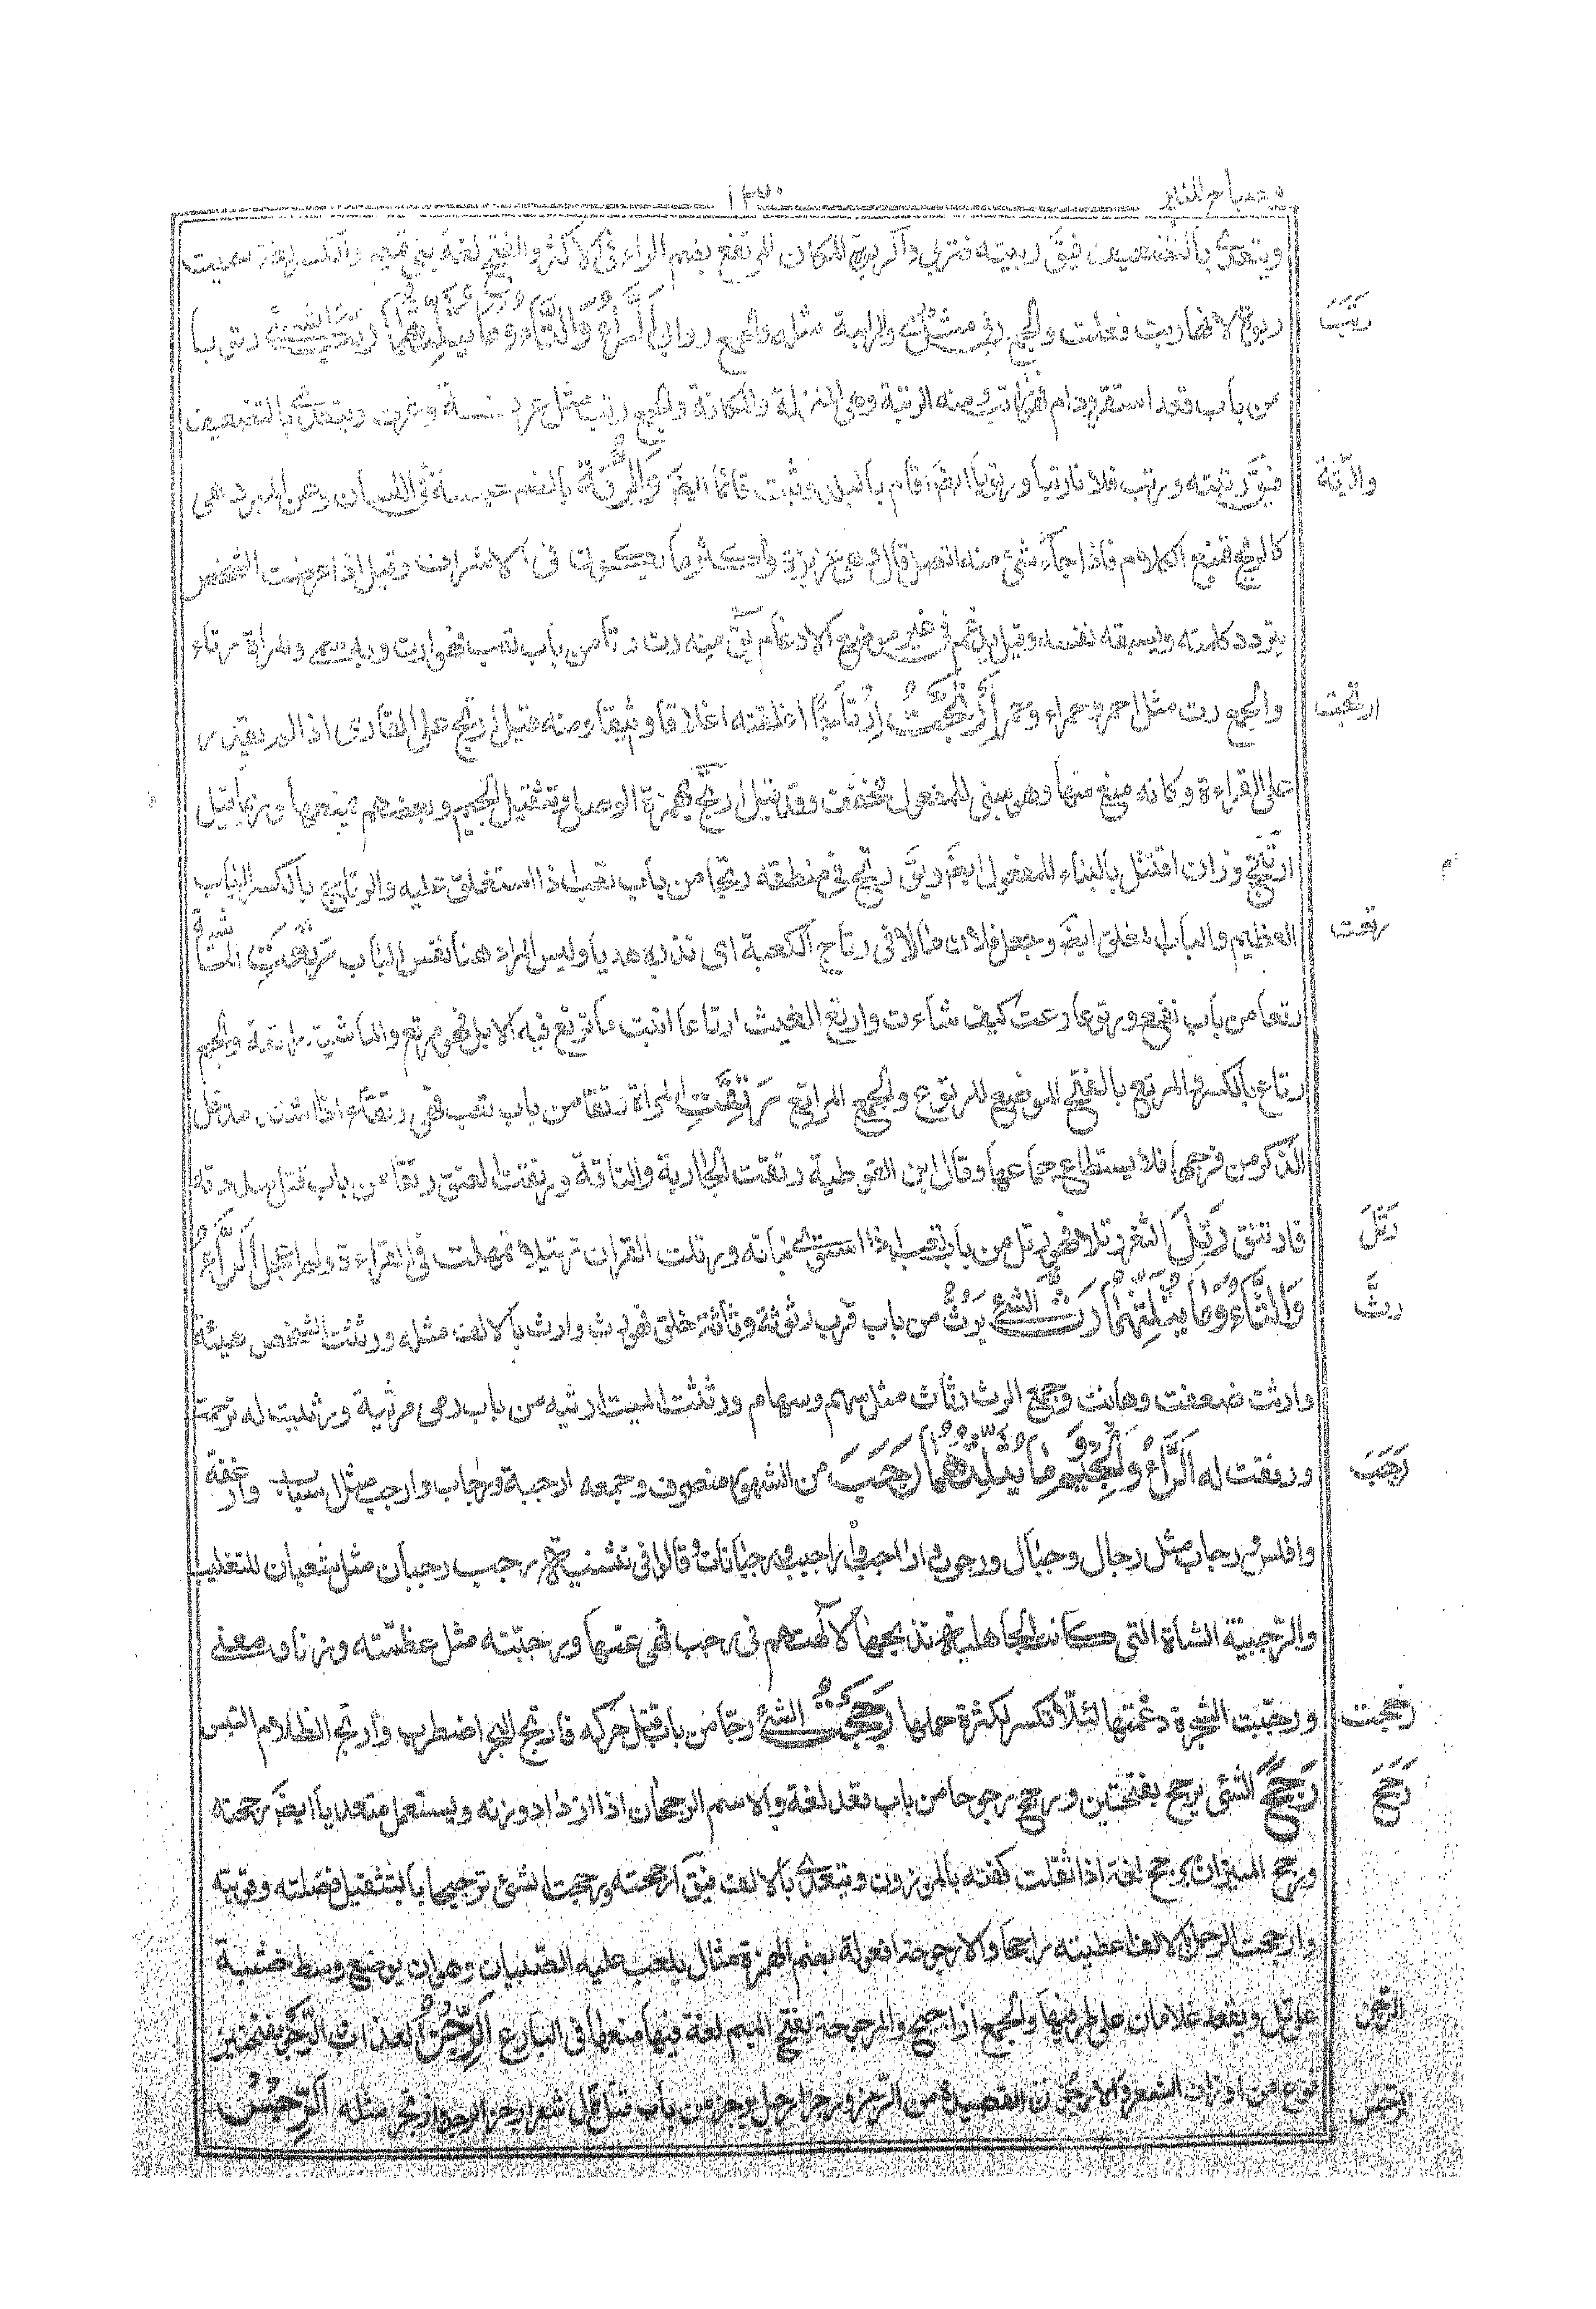 مصباح المنير ١٣٠
ويتعدى بالتضعيف فيق ربيته فتربى والربوة المكان المرتفع بضم الراء فى الاكثر والفتح لغة بنى تميم والكسر لغة سميت
ربوة لانها ربت فعلت والجمع ربى مثل والرابية مثله والجمع روابى الراء والتاء وما يثلثهما رتب الشئ رتوبا
رتب
من باب قعد استقر ودام فهو راتب ومنه الرتبة وهى المنزلة والمكانة والجمع رتب مثل غرفة وغرف ويتعدى بالتضعيف
فيق رتبته ورتب فلان رتبا ورتوبا ايضا اقام بالبلد وثبت قائما ايضا والرتة بالضم حبسة فى اللسان وعن المبرد هى
والرتة
كالريح تمنع الكلام فاذا جاء شئ منه اتصل قال وهى غريزة واكثر ما يكون فى الاشراف وقيل اذا عرضت الشخص
يتردد كلمته ويسبقه نفسه وقيل يدغم فى غير موضع الادغام يق منه رت رتتا من باب تعب فهو ارت وبه سمى والمراة رتاء
والجمع رت مثل احمر وحمراء وحمر ارتجت الباب ارتاجا اغلقته اغلاقا وثيقا ومنه قيل ارتج على القارى اذا لم يقدر
ارتجت
على القراءة وكانه منع منها وهو مبنى للمفعول مخفف وقد قيل ارتج بهمزة الوصل وتثقيل الجيم وبعضهم يمنعها وربما قيل
ارتتج وزان اقتتل بالبناء للمفعول ايضا ويق رتج فى منطقه رتجا من باب تعب اذا استغلق عليه والرتاج بالكسر الباب
العظيم والباب المغلق ايضا وجعل فلان ماله فى رتاج الكعبة اى نذره هديا وليس المراد هنا نفس الباب رتعت الماشية
رتعت
رتعا من باب نفع ورتوعا رعت كيف شاءت وارتع الغيث ارتاعا انبت ما ترتع فيه الابل فهو مرتع والماشية راتعة والجمع
رتاع بالكسر والمرتع بالفتح الموضع الرتوع والجمع المراتع رتقت المراة رتقا من باب تعب فهى رتقاء اذا انسد مدخل
الذكر من فرجها فلا يستطاع جماعها وقال ابن القوطية رتقت الجارية والناقة ورتقت الفتق رتقا من باب قتل سددته
فارتتق رتل الثغر رتلا فهو رتل من باب تعب اذا استوى نباته ورتلت القران ترتيلا تمهلت فى القراءة ولم اعجل الراء
رتل
والثاء وما يثلثهما رث الشئ يرث من باب قرب رثوثة ورثاثة خلق فهو رث وارث بالالف مثله ورثت الشخص هيئة
رث
وارثت ضعفت وهانت وجمع الرث رثاث مثل سهم وسهام ورثيت الميت ارثيه من باب رمى مرثية ورثيت له ترحمت
ورفقت له الراء والجيم وما يثلثهما رجب من الشهور منصرف وجمعه ارجبة ورجاب وارجب مثل اسباب وارغفة
رجب
وافلس ورجاب مثل رجال وجبال ورجوب واراجب واراجيب ورجبانات وقالوا فى تثنية رجب رجبان مثل شعبان للتغليب
والرجبية الشاة التى كانت الجاهلية تذبحها لالهتهم فى رجب فنهى عنها ورجبته مثل عظمته وزنا ومعنى
ورجبت الشجرة دعمتها لئلا تنكسر لكثرة حملها رججت الشئ رجا من باب قتل حركه فارتج البحر اضطرب وارتج الظلام التبس
رججت
رجح الشئ يرجح بفتحتين ورجح رجوحا من باب قعد لغة والاسم الرجحان اذا ازداد وزنه ويستعمل متعديا ايضا رجحته
رجح
ورجح الميزان يرجح لغة اذا ثقلت كفته بالموزون ويتعدى بالالف فيق ارجحته ورجحت الشئ ترجيحا بالتثقيل فضلته وقويته
وارجحت الرجل بالالف اعطيته راجحا والارجوحة افعولة بضم الهمزة مثال يلعب عليه الصبيان وهو ان يوضع وسط خشبة
على تل ويقعد غلامان على طرفيها والجمع اراجيح والمرجوحة بفتح الميم لغة فيها منعها فى البارع الرجز العذاب والرجز بفتحتين
الرجز
نوع من اوزان الشعر والارجوزة القصيدة من الرجز ورجز الرجل يرجز من باب قتل قال شعر الرجز وارتجز مثله الرجس
الرجس